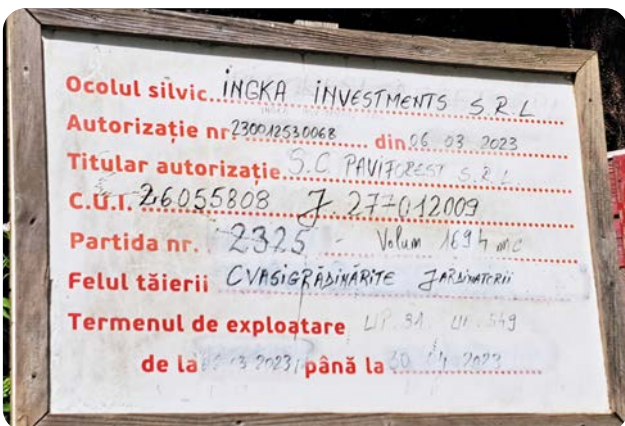 Ocolul silvic INGKA INVESTMENTS S.R.L
Autorizație nr. 230012530068 din 06 03 2023
Titular autorizație S.C PAVIFOREST S.R.L.
C.U.I. 26055808 J. 277012009
Partida nr. 2325 - Volum 1694 mc
Felul tăierii CVASIGRĂDINĂRITE JARDINATORII
Termenul de exploatare UP. 31. 549
de la 2023 până la 30 04 2023